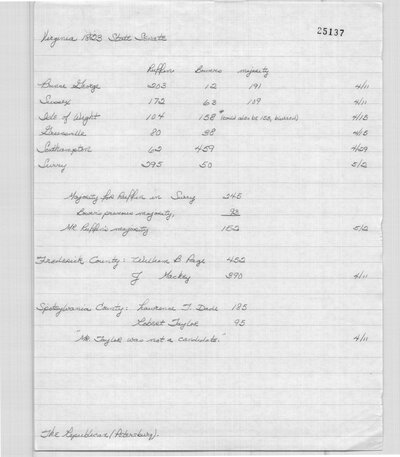 25137
Virginia 1823 State Senate
Ruffin Bowers majority
Prince George 203 12 191 4/11
Sussex 172 63 109 4/11
Isle of Wight 104 158 * (could also be 153, blurred) 4/15
Greensville 80 38 4/15
Southampton 62 459 4/29
Surry 295 50 5/2
Majority for Ruffin in Surry 245
Bowers previous majority, 93
Mr. Ruffin's majority 152 5/2
Frederick County: William B. Page 452
J Mackey 390 4/11
Spotsylvania County: Lawrence T. Dade 185
Robert Taylor 95
"Mr. Taylor was not a candidate." 4/11
The Republican (Petersburg).